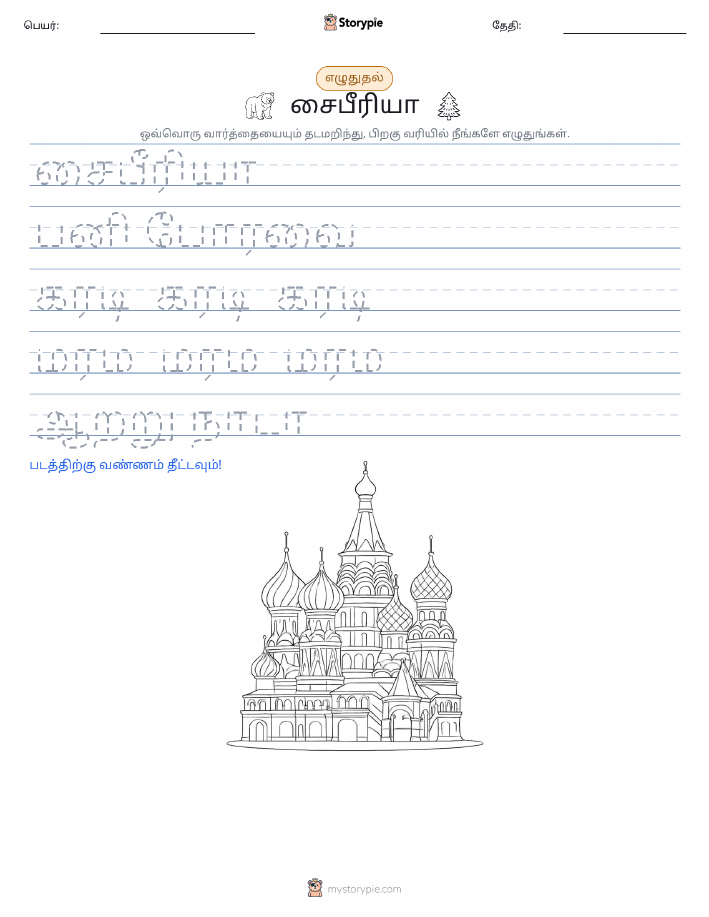 பெயர்:
Storypie
தேதி:
எழுதுதல்
சைபீரியா
ஒவ்வொரு வார்த்தையையும் தடமறிந்து, பிறகு வரியில் நீங்களே எழுதுங்கள்.
சைபீரியா
பனி போர்வை
கரடி கரடி கரடி
மரம் மரம் மரம்
ஆற்று நாடா
படத்திற்கு வண்ணம் தீட்டவும்!
mystorypie.com